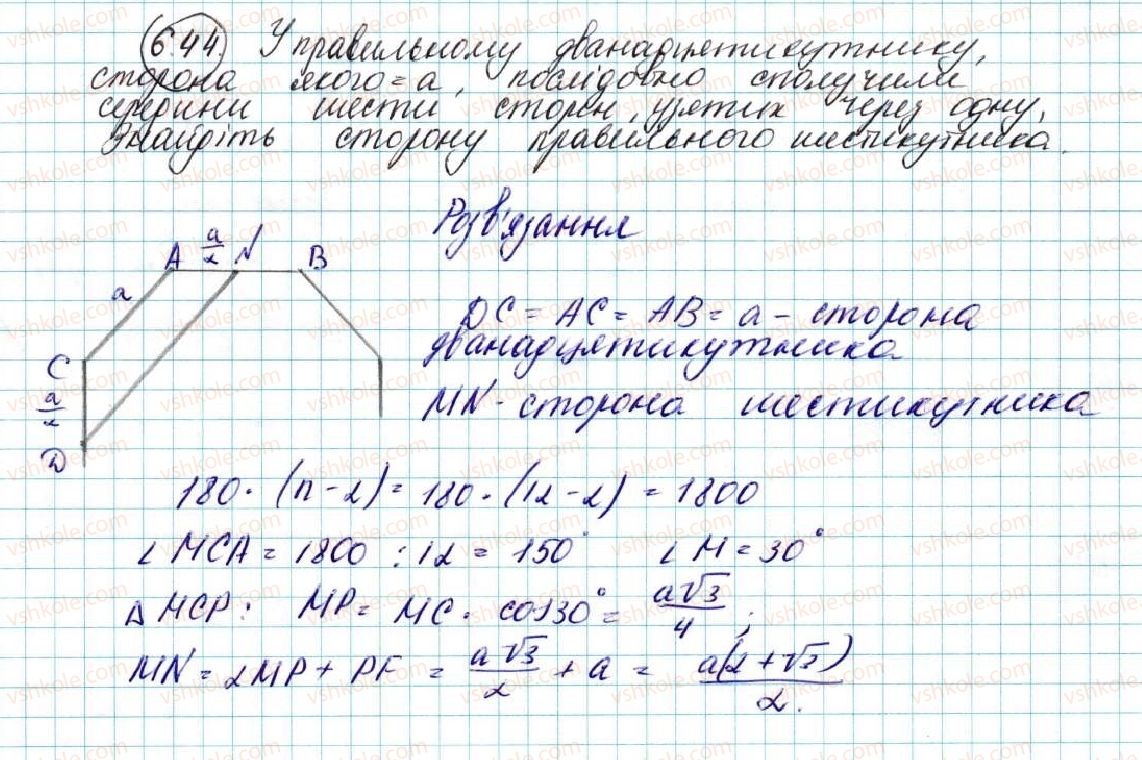 6.44 У правильному дванадцятикутнику,
сторона якого = a, послідовно сполучили
середини шести сторін, узятих через одну.
Знайдіть сторону правильного шестикутника.
Розв'язання
A a/2 N B
a
C
a/2
D
DC = AC = AB = a - сторона
дванадцятикутника
MN - сторона шестикутника
180 · (n - 2) = 180 · (12 - 2) = 1800
∠ MCA = 1800 : 12 = 150° ∠ M = 30°
Δ MCP: MP = MC · cos30° = a√3/4 ;
MN = 2MP + PF = a√3/2 + a = a(2 + √3)/2.